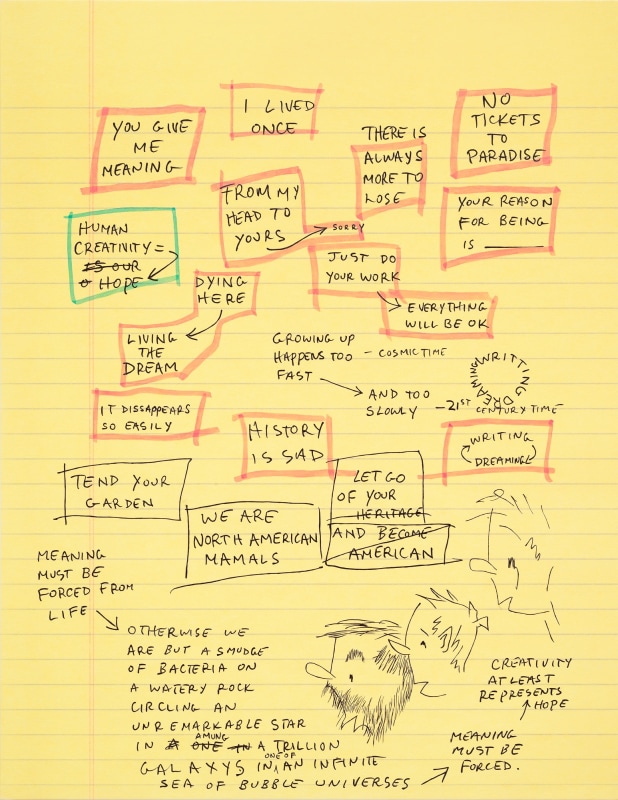 I LIVED
ONCE
NO
TICKETS
TO
PARADISE
YOU GIVE
ME
MEANING
THERE IS
ALWAYS
MORE TO
LOSE
FROM MY
HEAD TO
YOURS
SORRY
YOUR REASON
FOR BEING
IS ________
HUMAN
CREATIVITY =
IS OUR
HOPE
JUST DO
YOUR WORK
EVERYTHING
WILL BE OK
DYING
HERE
LIVING
THE
DREAM
GROWING UP
HAPPENS TOO
FAST
- COSMIC TIME
AND TOO
SLOWLY
- 21ST CENTURY TIME
WRITTING DREAMING
IT DISSAPPEARS
SO EASILY
HISTORY
IS SAD
WRITING
DREAMING
TEND YOUR
GARDEN
WE ARE
NORTH AMERICAN
MAMALS
LET GO
OF YOUR
HERITAGE
AND BECOME
AMERICAN
MEANING
MUST BE
FORCED FROM
LIFE
OTHERWISE WE
ARE BUT A SMUDGE
OF BACTERIA ON
A WATERY ROCK
CIRCLING AN
UNREMARKABLE STAR
IN A ONE IN AMUNG A TRILLION
GALAXYS IN ONE OF AN INFINITE
SEA OF BUBBLE UNIVERSES
MEANING
MUST BE
FORCED.
CREATIVITY
AT LEAST
REPRESENTS
HOPE